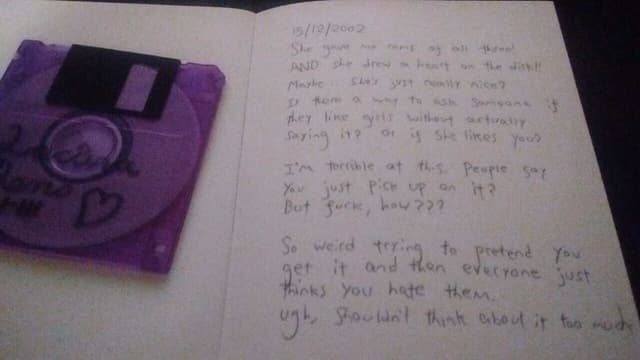 roms
15/12/2002
She gave me roms of all three!
AND she drew a heart on the disk!!
Maybe... she's just really nice?
Is there a way to ask someone if
they like girls without actually
saying it? Or if she likes you?
I'm terrible at this. People say
you just pick up on it?
But fuck, how???
So weird trying to pretend you
get it and then everyone just
thinks you hate them.
ugh, shouldn't think about it too much